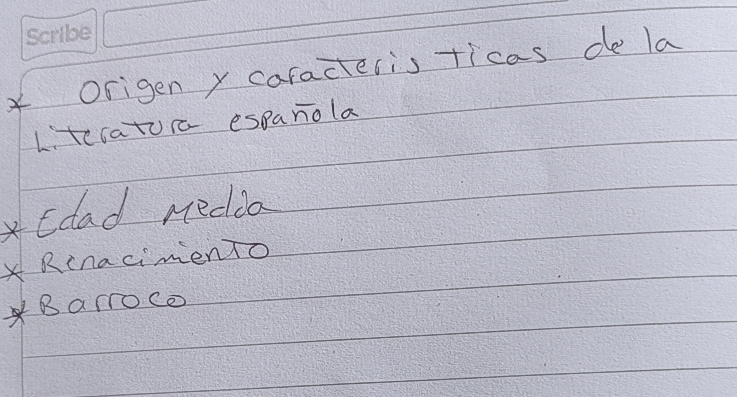 Scribe
* Origen y caracteris ticas de la
Literatura española
* Edad Media
* Renacimiento
* Barroco